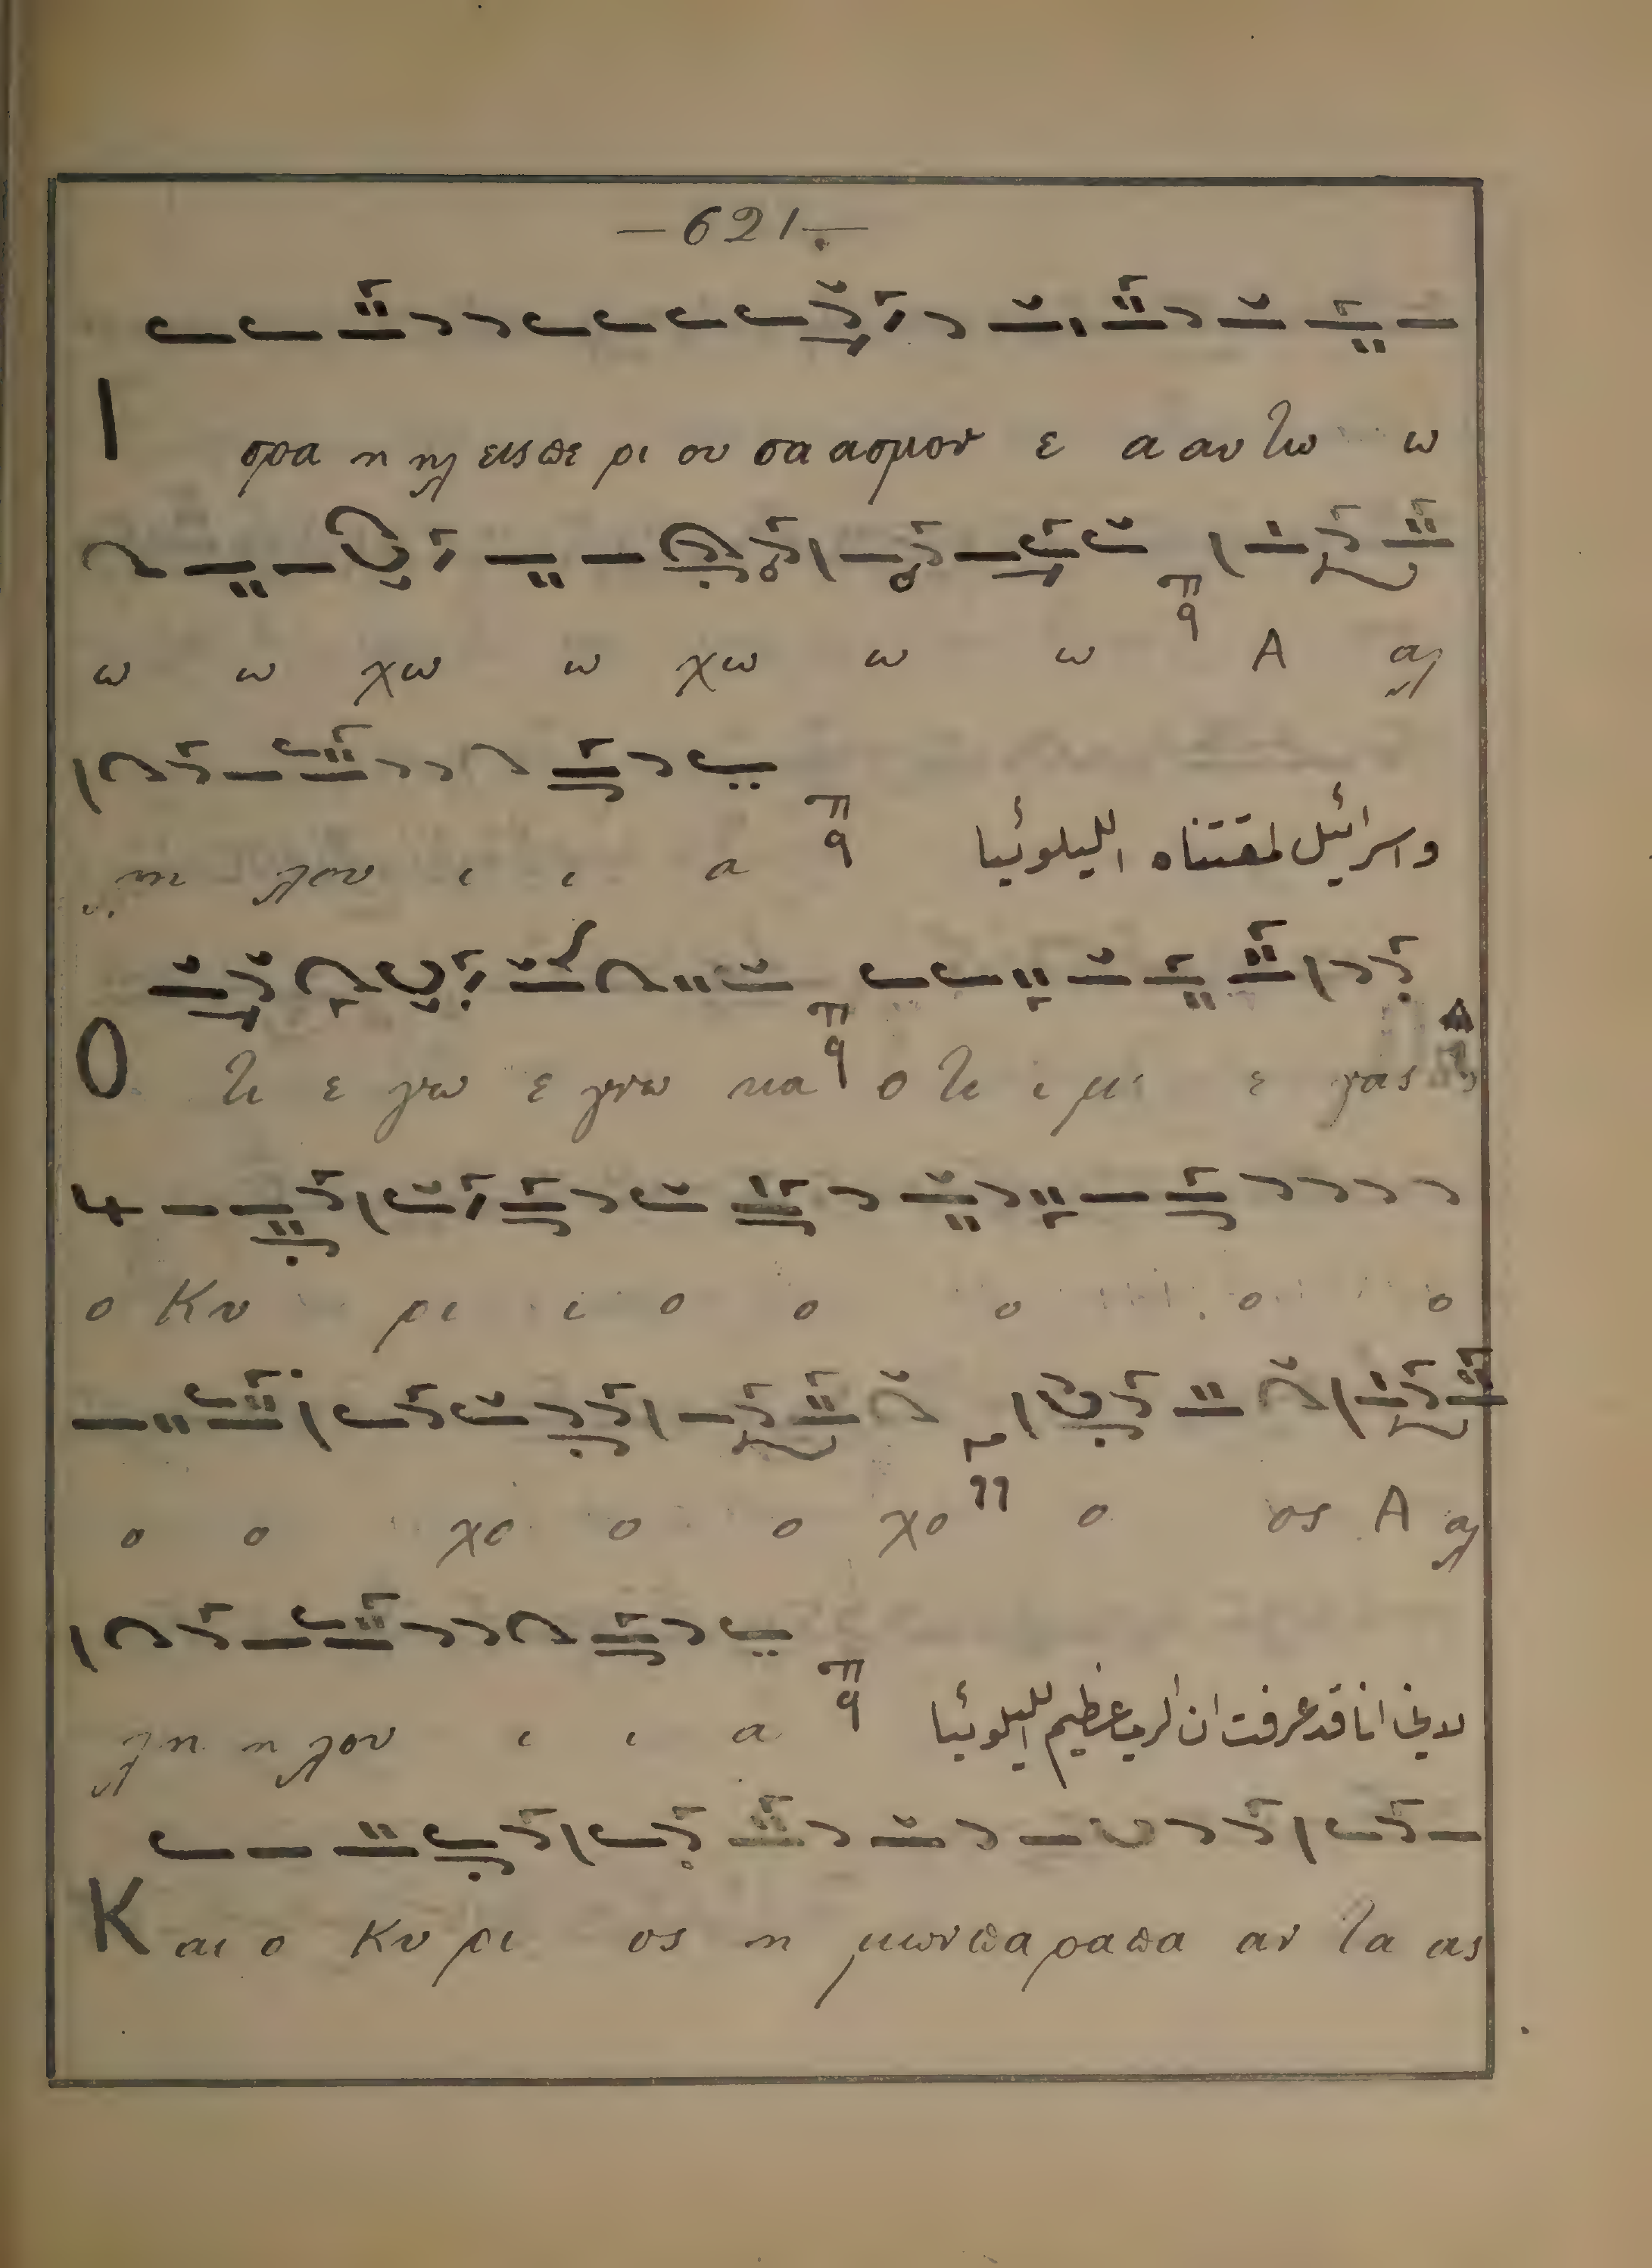 —621.—
Ισρα η ηλ εις πε ρι ου σα ασμον ε α αυ τω ω
ω ω χω ω χω ω ω Α αλ
λη λου ι ι α واسرائيل لمقتناه الليلوئيا
Ο τι ε γω ε γνω κα ο τι ι με ε γας
ο Κυ ρι ι ο ο ο ο ο
ο ο χο ο ο χο ο ος Α αλ
λη η λου ι ι α لاني انا قد عرفت ان الرب عظيم الليلوئيا
Και ο Κυ ρι ος η μων πα ρα πα αν τα ας